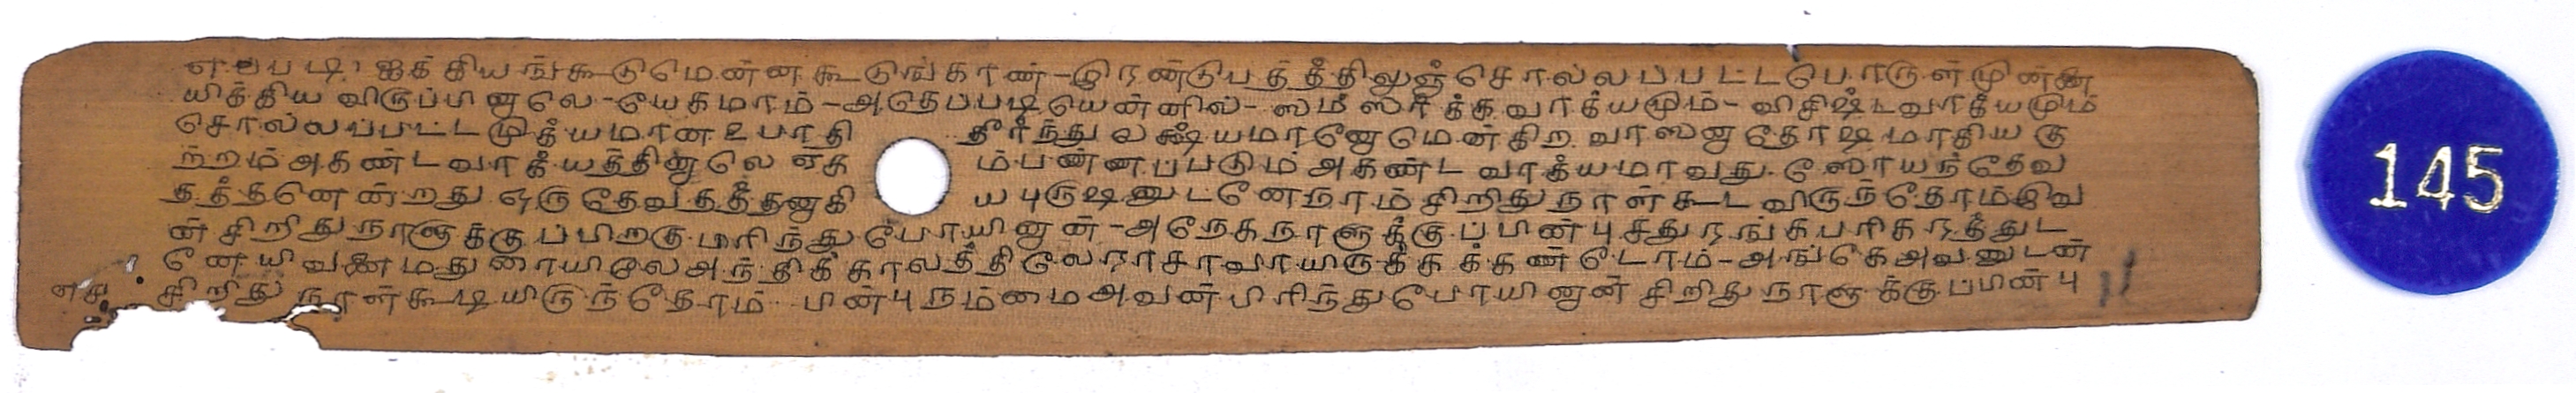 எப்படி ஐக்கியங்கூடுமென்ன கூடுங்காண்-இரண்டுபத்தீதிலுஞ்சொல்லப்பட்டபொருள்முன்னை
யிக்கிய விருப்பினாலே-யேகமாம்-அதெப்படியென்னில்-ஸமீஸர்க்கவாக்யமும்-விசிஷ்டவாக்யமும்
சொல்லப்பட்டமுக்யமான உபாதி தீர்ந்து லக்ஷ்யமானோமென்கிற வாஸனாதோஷமாகிய கு
ற்றம் அகண்டவாக்யத்தினாலே ஏக ம்பண்ணப்படும் அகண்ட வாக்யமாவது ஸோயந்தேவ
தத்தனென்றது ஒரு தேவதத்தனாகி ய புருஷனுடனேநாம் சிறிது நாள் கூட விருந்தோம் இவ
ன் சிறிது நாளுக்குப்பிறகு மரிந்து போயினான்-அநேகநாளுக்குப்பின்பு சதுரங்கபரிகரத்துட
னே யிவனை மதுரையிலே அந்திக் காலத்திலே ராசாவாயிருக்கக்கண்டோம்-அங்கே அவனுடன்
சிறிது நாள்கூடியிருந்தோம் பின்பு நம்மை அவன் பிரிந்து போயினான் சிறிது நாளுக்குப்பின்பு
145